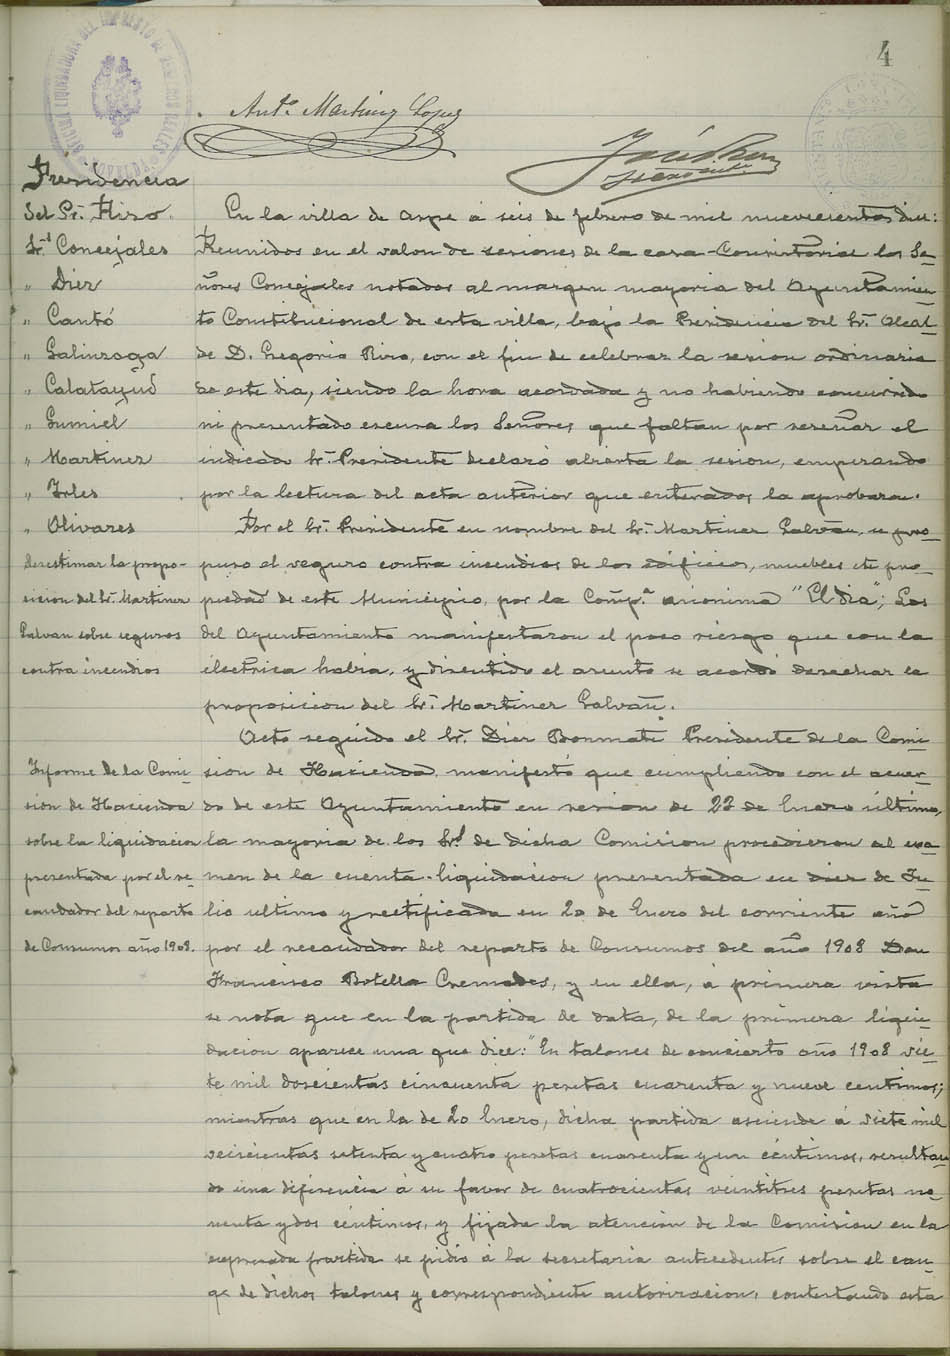 4
Antº Martinez Lopez
José
Presidencia
Del Sr. Rizo.
Sres Concejales
" Diez
" Cantó
" Galinsoga
" Calatayud
" Gumiel
" Martinez
" Irles
" Olivares
Desestimar la propo-
sicion del Sr. Martinez
Galvañ sobre seguros
contra incendios
Informe de la Comi-
sion de Hacienda
sobre la liquidacion
presentada por el re-
caudador del reparto
de Consumos año 1908.
En la villa de Aspe á seis de febrero de mil nuevecientos diez:
Reunidos en el salon de sesiones de la casa-Consistorial los Se-
ñores Concejales notados al margen mayoria del Ayuntamien-
to Constitucional de esta villa, bajo la Presidencia del Sr. Alcal-
de D. Gregorio Rizo, con el fin de celebrar la sesion ordinaria
de este dia, siendo la hora acordada y no habiendo concurrido
ni presentado escusa los Señores que faltan por reseñar el
indicado Sr. Presidente declaró abierta la sesion, empezando
por la lectura del acta anterior que enterados la aprobaron.
Por el Sr. Presidente en nombre del Sr. Martinez Galvañ, se pro-
puso el seguro contra incendios de los edificios, muebles etc pro-
piedad de este Municipio, por la Compª anonima "El dia"; Los
del Ayuntamiento manifestaron el poco riesgo que con la
électrica habia, y discutido el asunto se acordó desechar la
proposicion del Sr. Martinez Galvañ.
Acto seguido el Sr. Diez Bonmati Presidente de la Comi-
sion de Hacienda, manifestó que cumpliendo con el acuer-
do de este Ayuntamiento en sesion de 23 de Enero último,
la mayoria de los Sres de dicha Comision procedieron al exa-
men de la cuenta-liquidacion presentada en diez de Ju-
lio ultimo y rectificada en 20 de Enero del corriente año
por el recaudador del reparto de Consumos del año 1908 Don
Francisco Botella Cremades, y en ella, á primera vista
se nota que en la partida de data, de la primera liqui-
dacion aparece una que dice: "En talones de concierto año 1908 sie-
te mil doscientas cincuenta pesetas cuarenta y nueve centimos;
mientras que en la de 20 Enero, dicha partida asciende á siete mil
seiscientas setenta y cuatro pesetas cuarenta y un céntimos, resultan-
do una diferencia á su favor de cuatrocientas veintitres pesetas no-
venta y dos céntimos, y fijada la atención de la Comision en la
expresada partida se pidió á la secretaria antecedentes sobre el can-
ge de dichos talones y correspondiente autorizacion, contestando esta